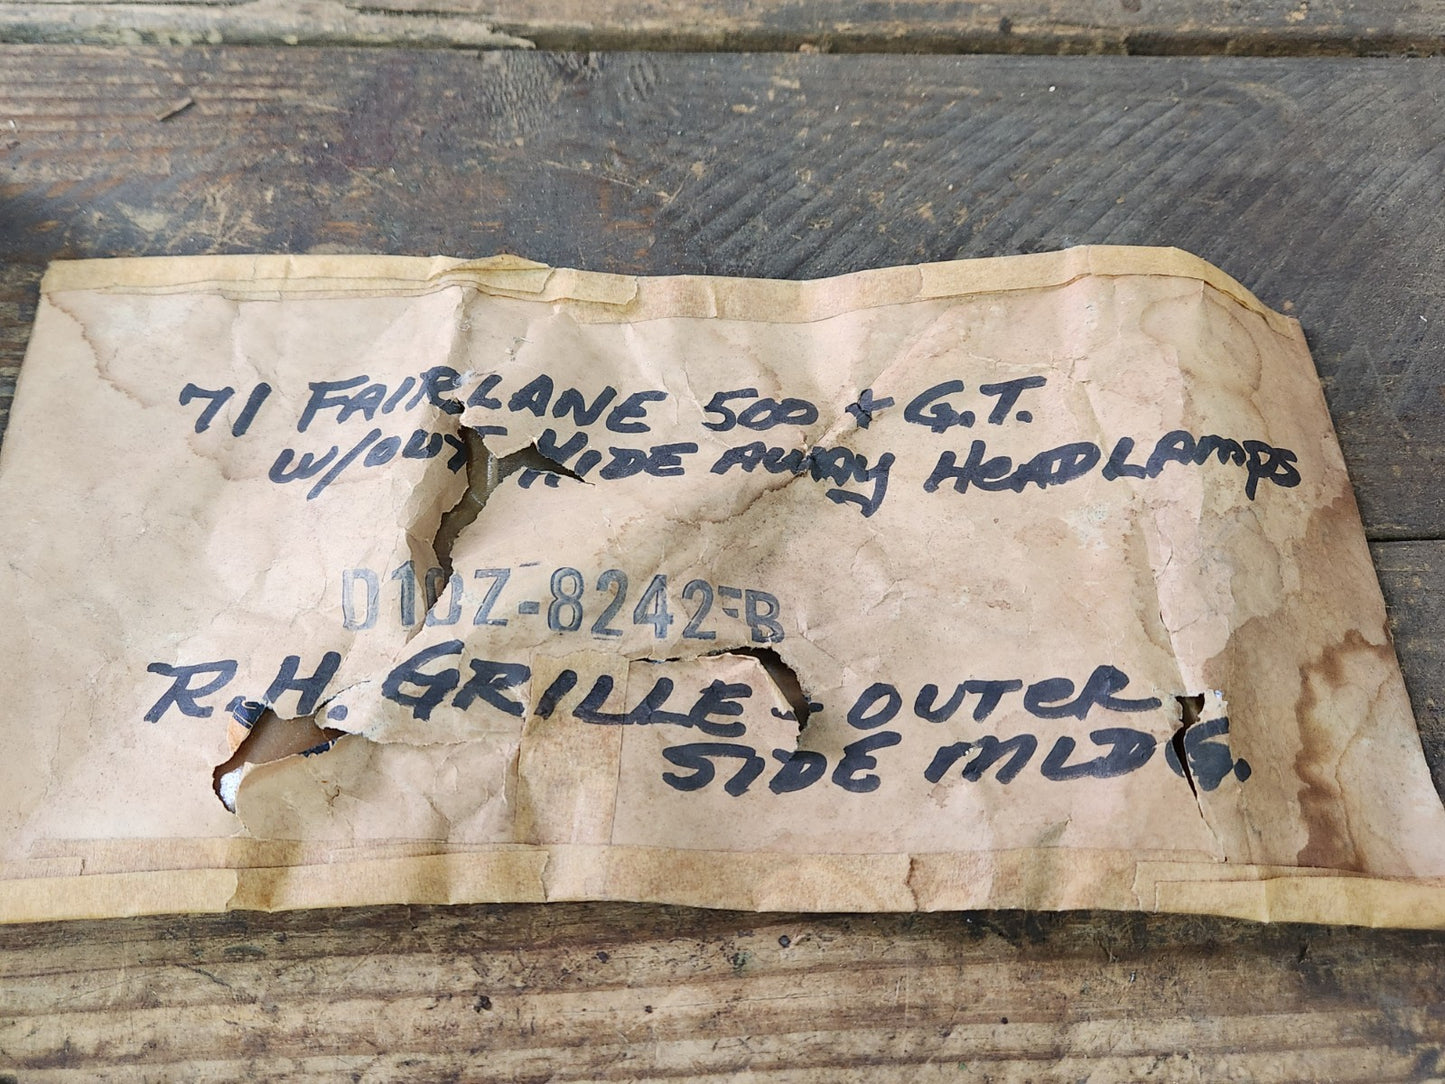 71 FAIRLANE 500 + G.T.
W/OUT HIDE AWAY HEADLAMPS
D1OZ-8242-B
R.H. GRILLE - OUTER
SIDE MLDG.